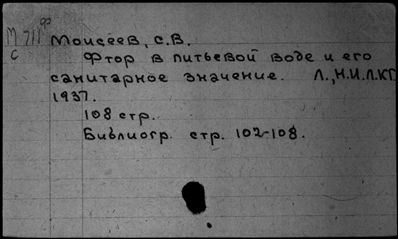 ф
М 711 Моисеев, С.В.
С Фтор в питьевой воде и его
санитарное значение. Л., Н.И.Л.КГ.
1937.
108 стр.
Библиогр. стр. 102-108.